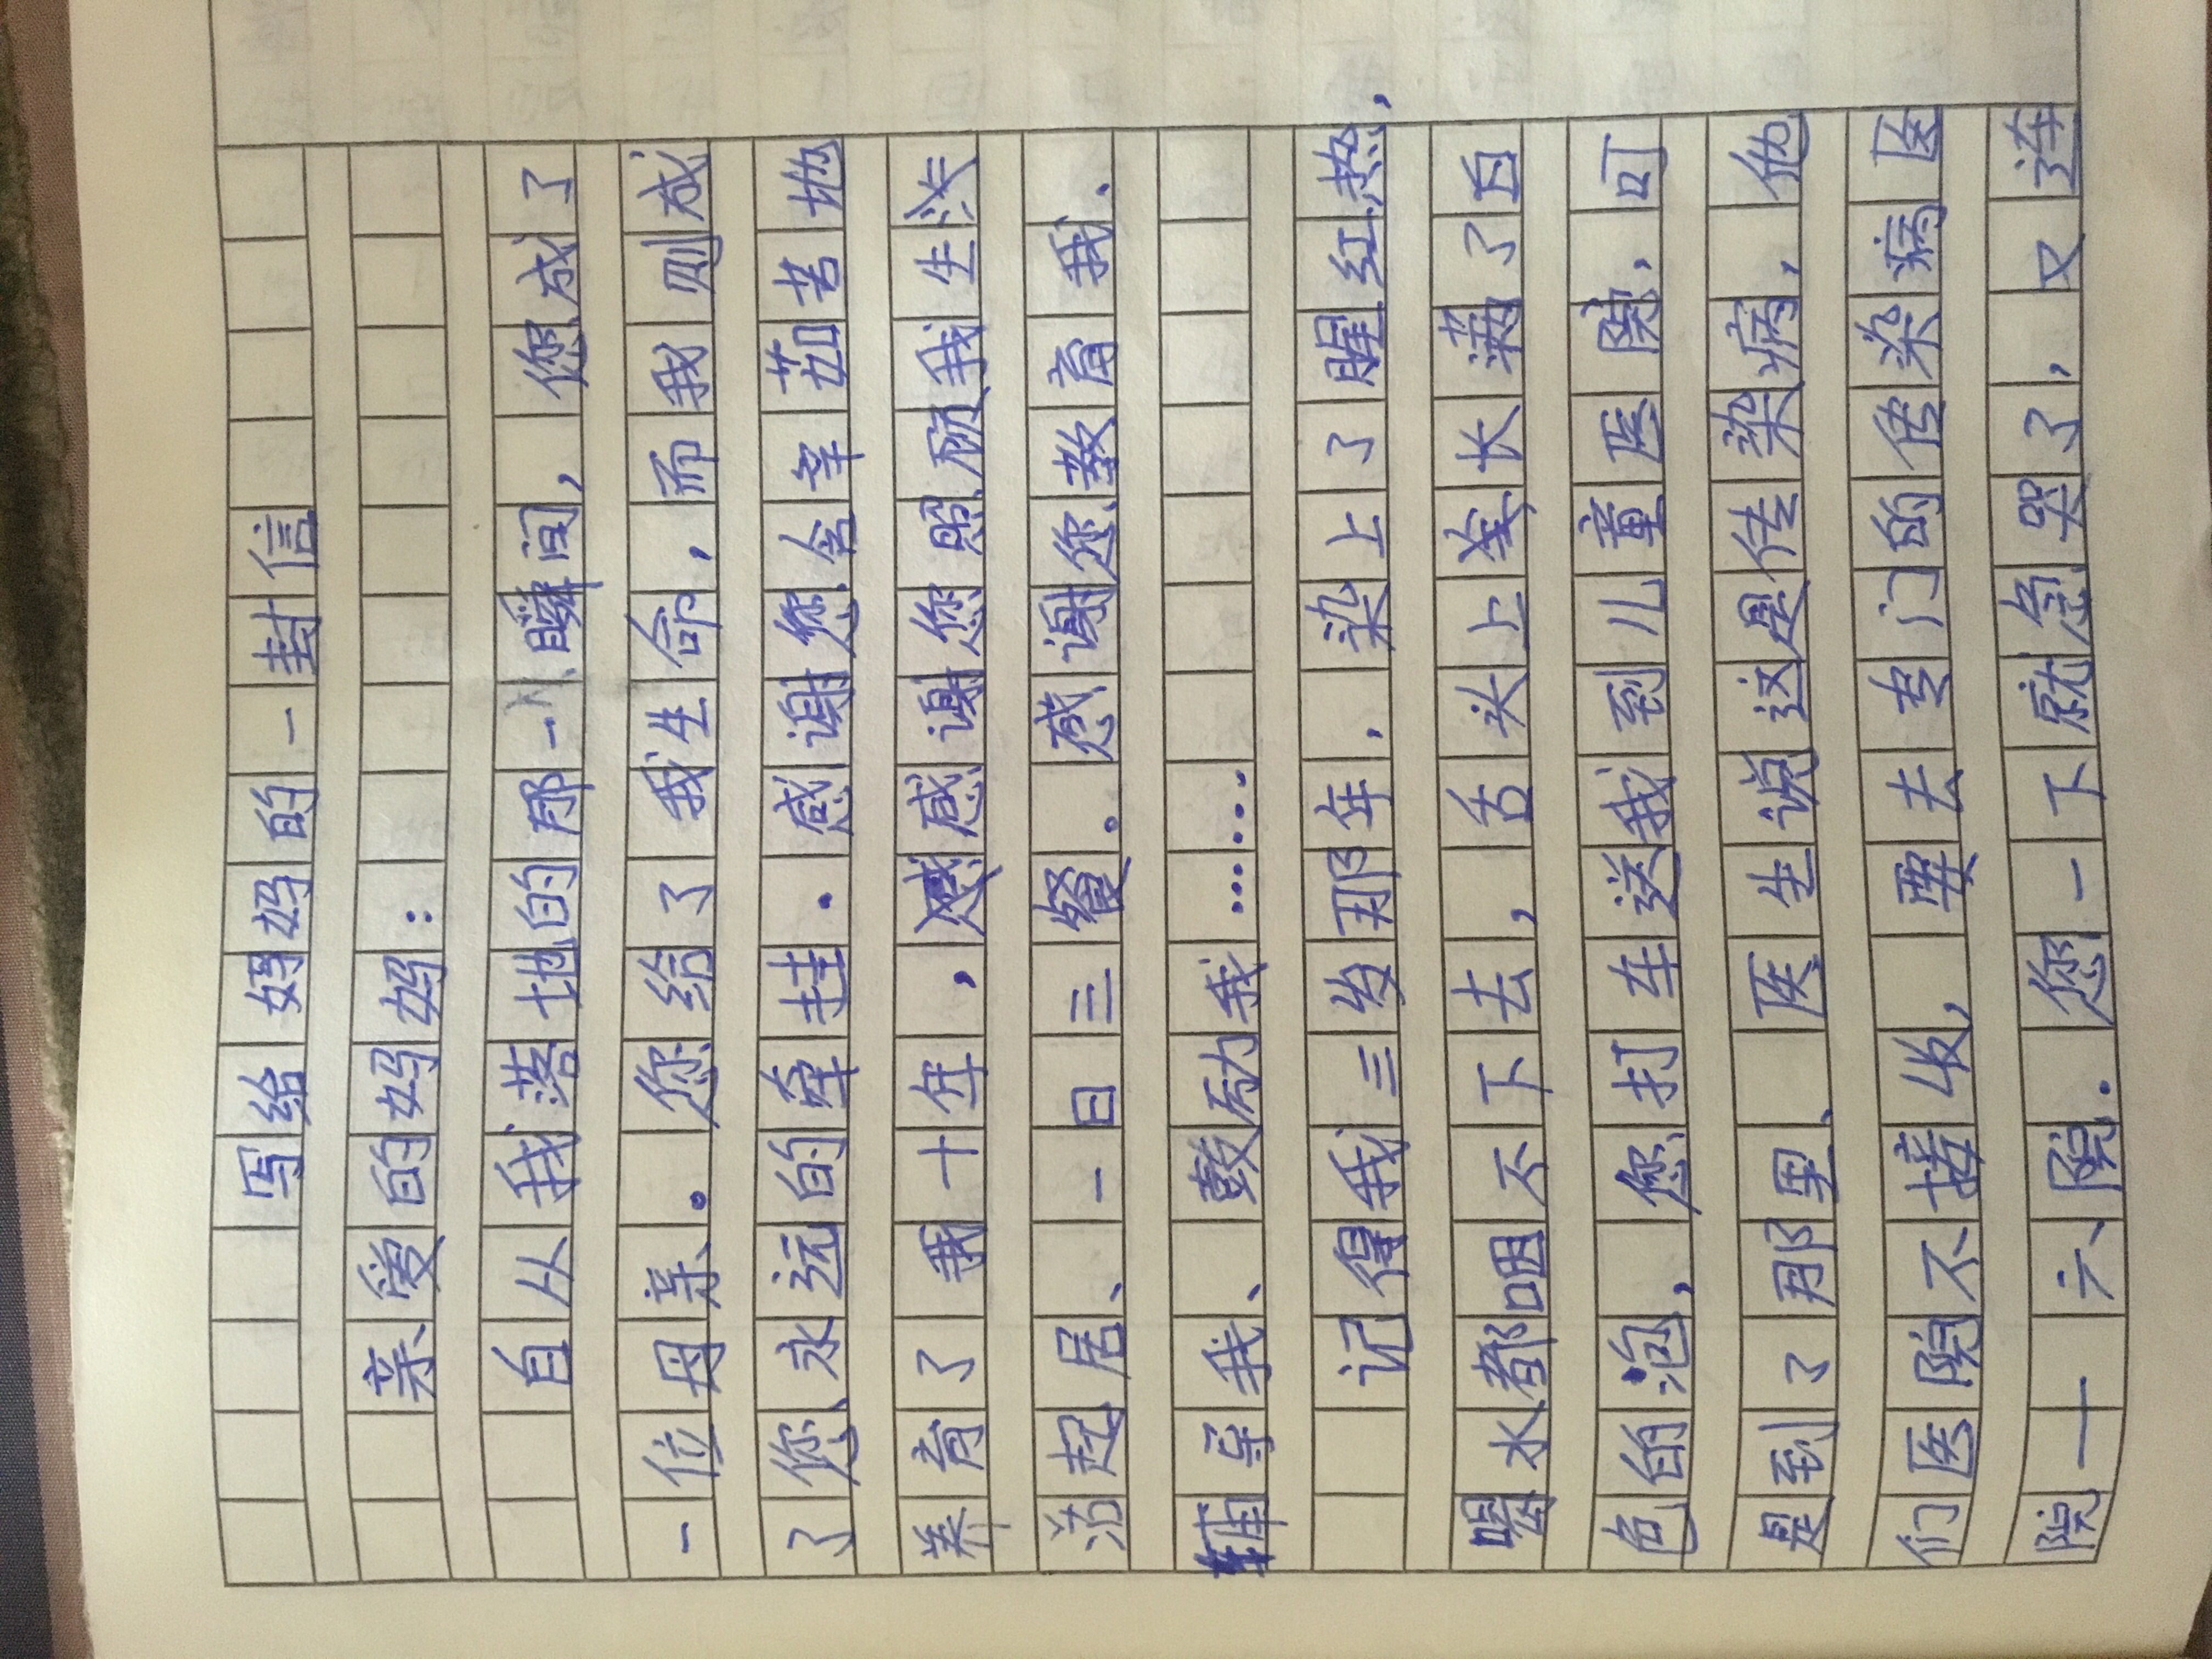 写给妈妈的一封信
亲爱的妈妈：
自从我落地的那一瞬间，您成了
一位母亲。您给了我生命，而我则成
了您永远的牵挂。感谢您含辛茹苦地
养育了我十年，感感谢您照顾我生活
活起居、一日三餐。感谢您教育我。
辅导我、鼓励我……
记得我三岁那年，染上了腥红热，
喝水都咽不下去，舌头上参长满了百
色的泡，您打车送我到儿童医院，可
是到了那里、医生说这是传染病，他
们医院不接收，要去专门的传染病医
院——六院。您一下就急哭了，又连